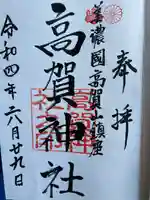 奉拝
美濃國高賀山鎮座
高賀神社
令和四年六月廿九日